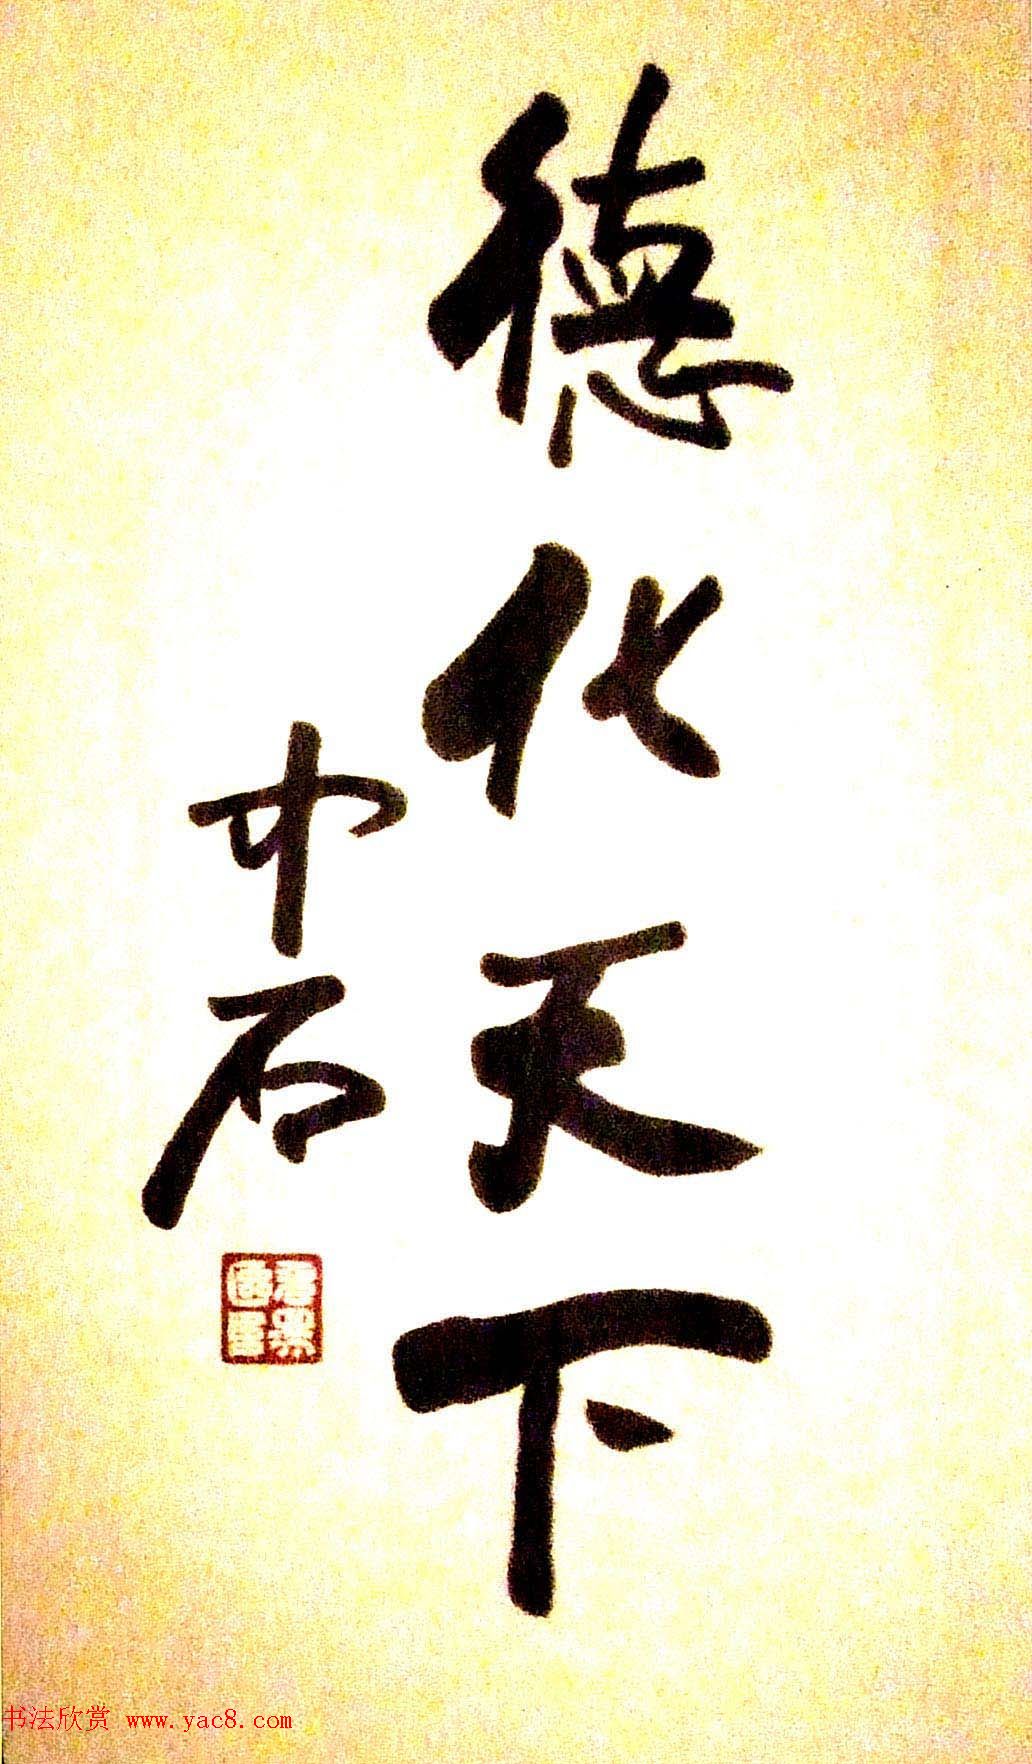 德化天下
中石
书法欣赏 www.yac8.com